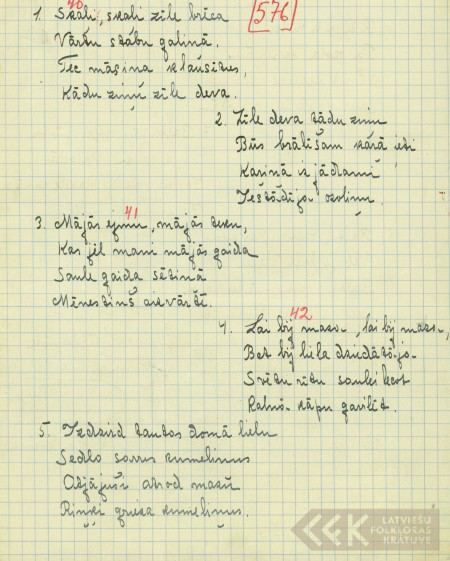 40
1. Skali, skali zīle brēca [576]
Vārtu stabu galiņā.
Tec māsiņa klausīties,
Kādu ziņu zīle deva.
2. Zīle deva tādu ziņu
Būs brālīšam kārā iet
Kariņā iz jādami
Iestādīja ozoliņu.
41
3. Mājās eimu, mājās teku,
Kas jel mani mājās gaida
Saule gaida sētiņā
Mēnestiņš aizvārtē.
42
4. Lai bij maza, lai bij maza,
Bet bij liela dziedātāja
Svētu rītu saulei lecot
Kalnā kāpu gavilēt.
5. Izdzird tautas domā lielu
Sedlo savus kumeliņus
Atjājuši atrod mazu
Riņķī grieza kumeliņus.
LATVIEŠU
FOLKLORAS
KRĀTUVE